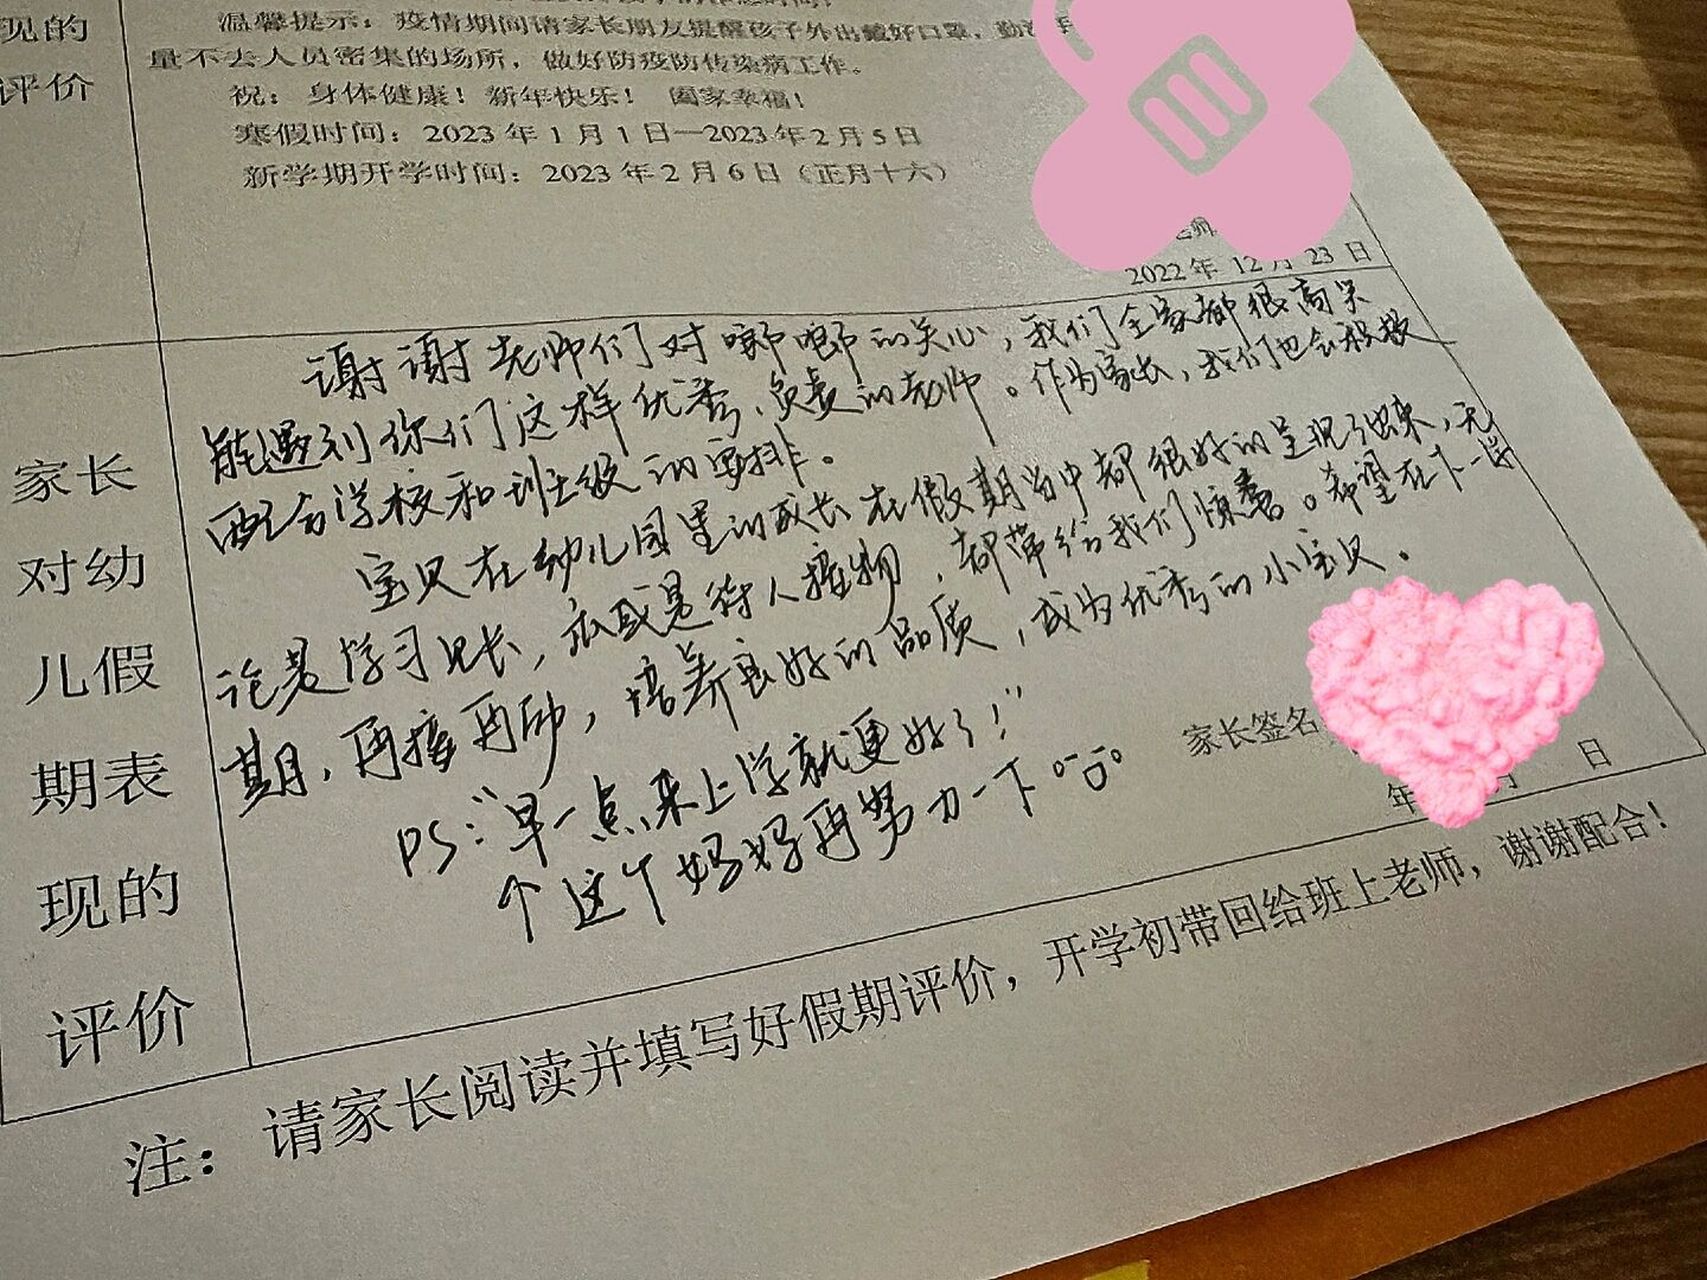 现的
评价
温馨提示：疫情期间请家长朋友提醒孩子外出戴好口罩，勤洗手
量不去人员密集的场所，做好防疫防传染病工作。
祝：身体健康！新年快乐！ 阖家幸福！
寒假时间：2023年1月1日—2023年2月5日
新学期开学时间：2023年2月6日（正月十六）
老师
2022年12月23日
家长
对幼
儿假
期表
现的
评价
谢谢老师们对啷啷的关心，我们全家都很高兴
能遇到你们这样优秀、负责的老师。作为家长，我们也会积极
配合学校和班级的安排。
宝贝在幼儿园里的成长在假期当中都很好的呈现了出来，无
论是学习见长，亦或是待人接物，都带给我们惊喜。希望在下一学
期，再接再励，培养良好的品质，成为优秀的小宝贝。
PS："早一点来上学就更好了！"
个这个妈妈再努力一下
家长签名
年 月 日
注：请家长阅读并填写好假期评价，开学初带回给班上老师，谢谢配合！